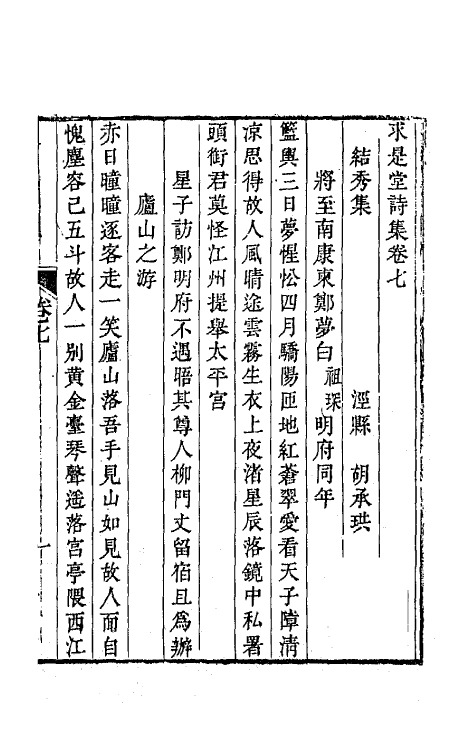 求是堂詩集卷七
結秀集　涇縣　胡承珙
將至南康柬鄭夢白祖琛明府同年
籃輿三日夢惺忪四月驕陽匝地紅蒼翠愛看天子障清
凉思得故人風晴途雲霧生衣上夜渚星辰落鏡中私署
頭銜君莫怪江州提舉太平宮
星子訪鄭明府不遇晤其尊人柳門丈留宿且爲辦
廬山之游
赤日曈曈逐客走一笑廬山落吾手見山如見故人面自
愧塵容已五斗故人一別黃金臺琴聲遥落宮亭隈西江
卷七
一